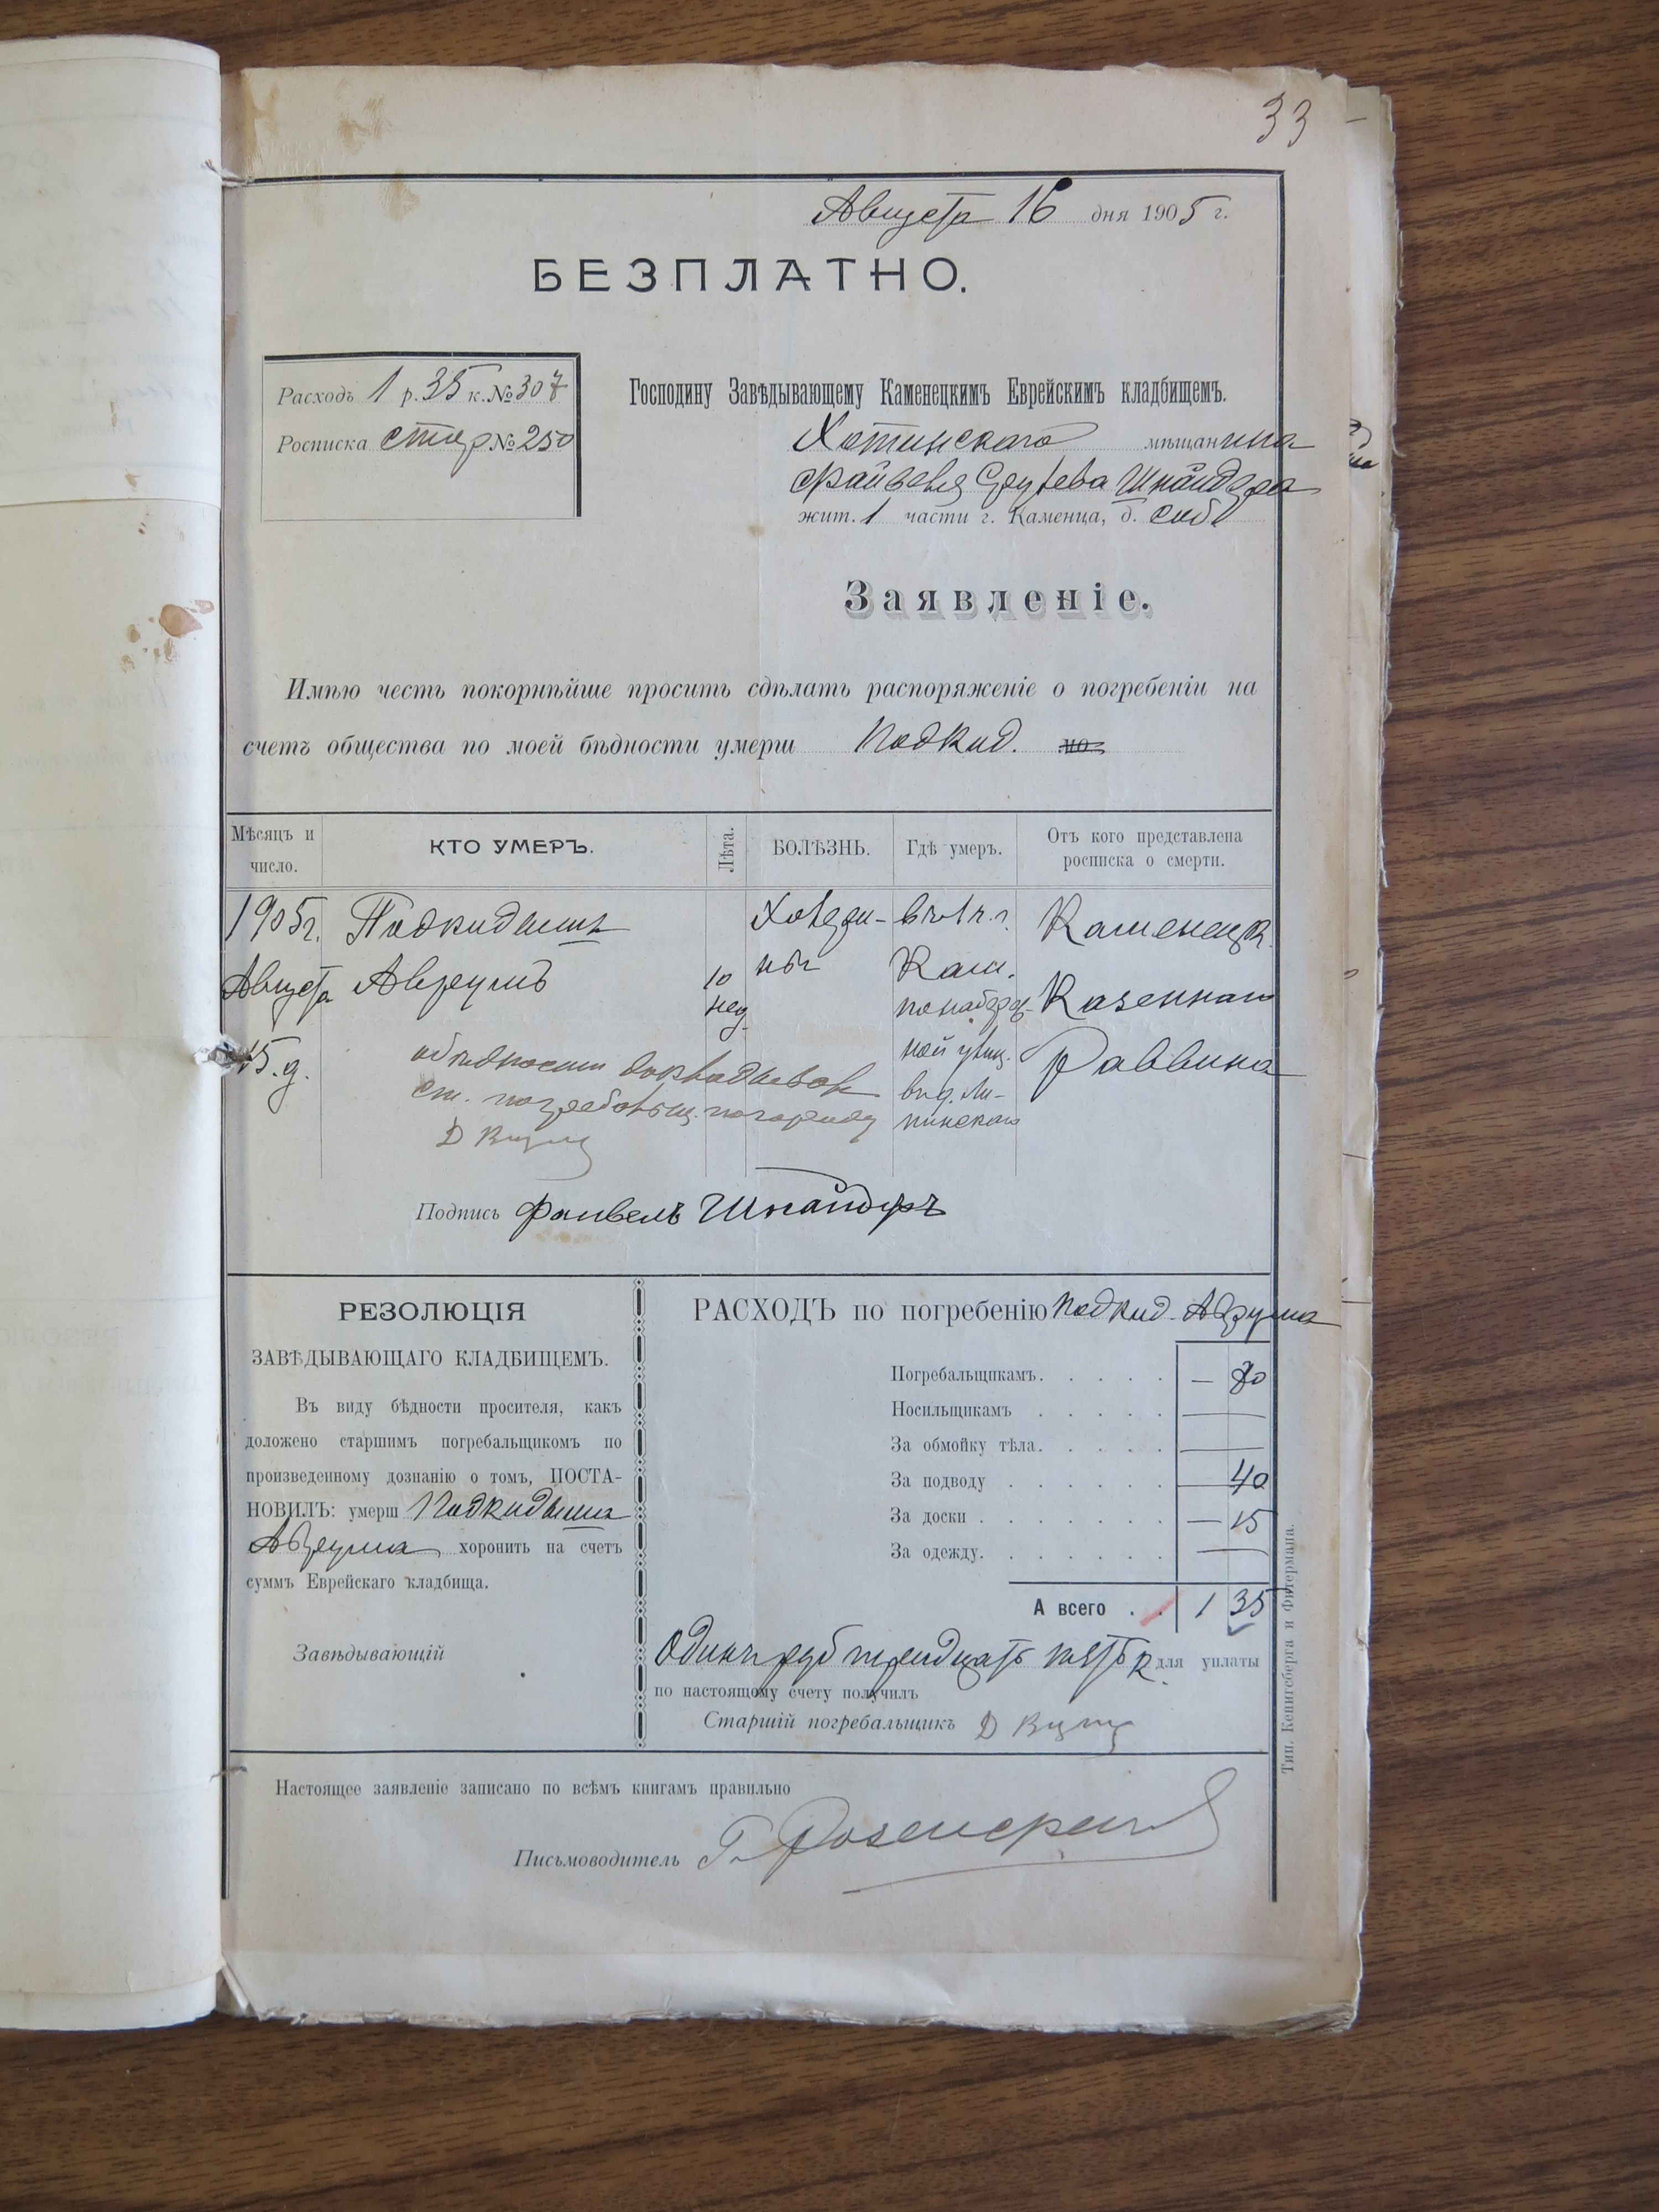 33
Августа 16 дня 1905 г.
БЕЗПЛАТНО.
Расходъ 1 р. 35 к. № 307
Росписка стар № 250
Господину Завѣдывающему Каменецкимъ Еврейскимъ кладбищемъ.
Хотинскаго мѣщанина
Файвеля Сруlева Шнайдера
жит. 1 части г. Каменца, д. соб
Заявленіе.
Имѣю честь покорнѣйше просить сдѣлать распоряженіе о погребеніи на
счетъ общества по моей бѣдности умерш Подкид. мо
Мѣсяцъ и число.
КТО УМЕРЪ.
Лѣта.
БОЛѢЗНЬ.
Гдѣ умеръ.
Отъ кого представлена росписка о смерти.
1905г. Подкидышъ Каменецк.
Августа Аврумъ 10 Кам. Казеннаго
нед. по набереж-
15 д. ной улиц. Раввина
о бѣдности докладывалъ
ст. погребальщ.
в д. Ли-
пинскаго
Подпись Файвель Шнайдеръ
РЕЗОЛЮЦІЯ
ЗАВѢДЫВАЮЩАГО КЛАДБИЩЕМЪ.
Въ виду бѣдности просителя, какъ
доложено старшимъ погребальщикомъ по
произведенному дознанію о томъ, ПОСТА-
НОВИЛЪ: умерш Подкидыша
Аврума хоронить на счетъ
суммъ Еврейскаго кладбища.
Завѣдывающій
РАСХОДЪ по погребенію подкид. Аврума
Погребальщикамъ. — 80
Носильщикамъ —
За обмойку тѣла. —
За подводу — 40
За доски — 15
За одежду. —
А всего 1 35
Одинъ руб тридцать пять к. для уплаты
по настоящему счету получилъ
Старшій погребальщикъ
Настоящее заявленіе записано по всѣмъ книгамъ правильно
Письмоводитель
Тип. Кенигсберга и Фитермана.